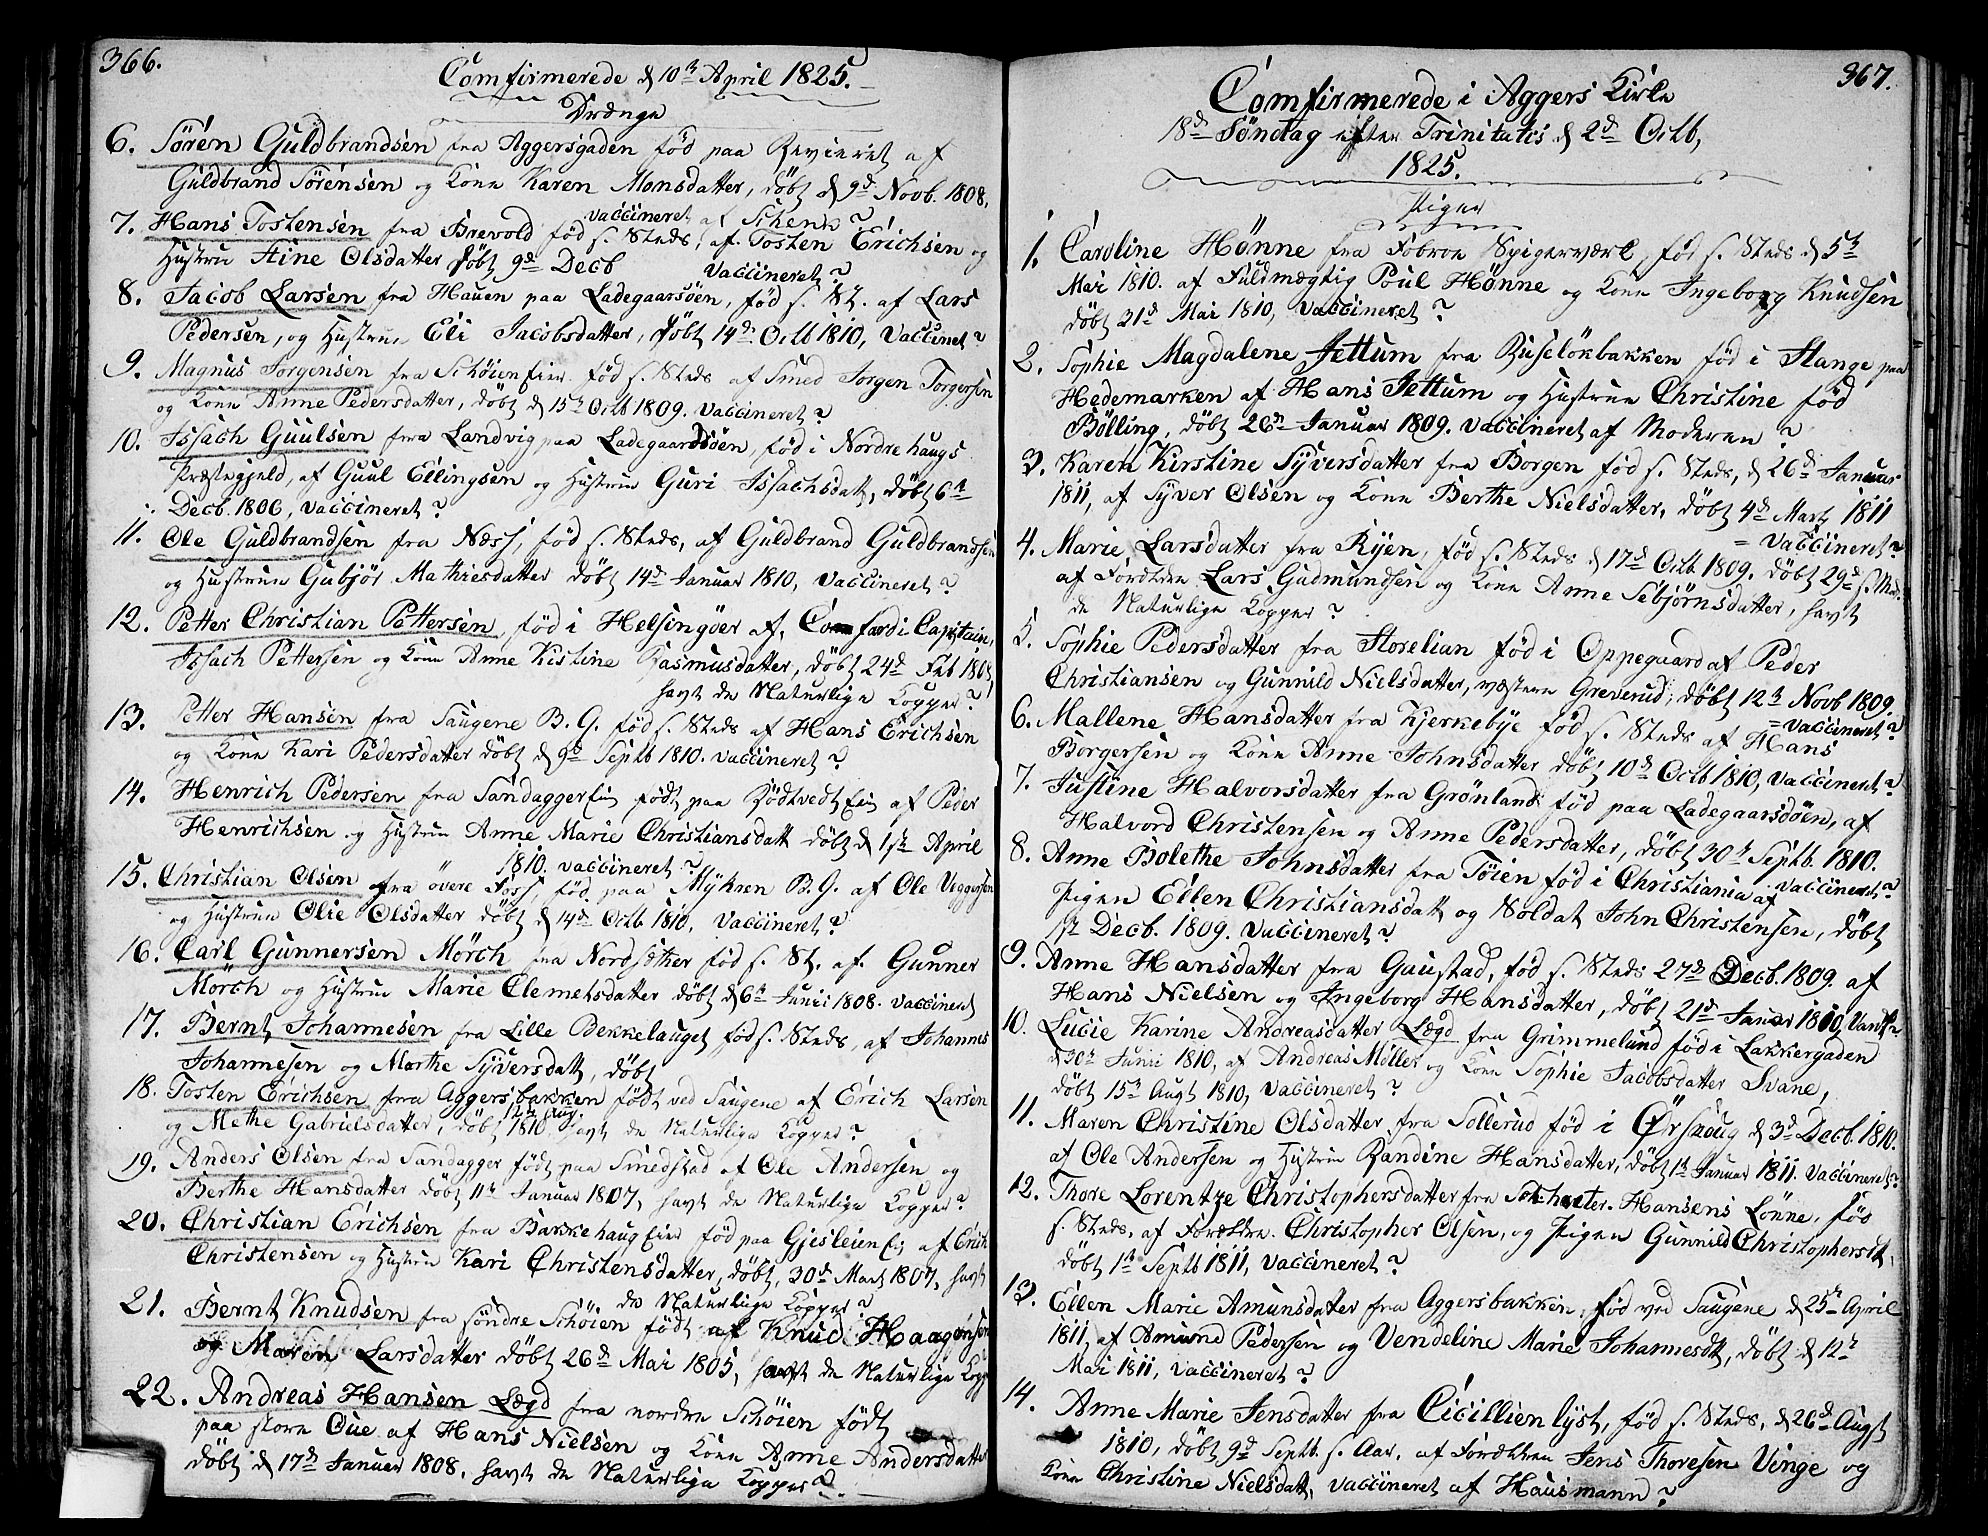 366.
Comfirmerede d 10de April 1825.
Drænge
6. Sören Guldbrandsen fra Aggersgaden fød paa Revieret af
Guldbrand Sørensen og Kone Karen Monsdatter, døbt d 9de Novb. 1808,
vaccineret af Schenn ?
7. Hans Tostensen fra Brevold fød s. Steds, af Tosten Erichsen og
Hustrue Stine Olsdatter døbt 9de Decb vaccineret ?
8. Jacob Larsen fra Hauen paa Ladegaarsøen, fød s. St. af Lars
Pedersen, og Hustrue Eli Jacobsdatter, døbt 14de Octb 1810, Vaccinet ?
9. Magnus Jorgensen fra Schöien Eier fød s. Steds af Smed Jorgen Torgersen
og Kone Anne Pedersdatter, döbt d 15de Octb 1809. vaccineret ?
10. Issach Guulsen fra Landvig paa Ladegaardsöen, fød i Nordrehaugs
Præstegjeld, af Guul Ellingsen og Hustrue Guri Issachsdatt, døbt 6te
Decb. 1806, vaccineret ?
11. Ole Guldbrandsen fra Næss, fød s. Steds, af Guldbrand Guldbrandsen
og Hustrue Gubjør Mathiesdatter döbt 14de Januar 1810, Vaccineret ?
12. Petter Christian Pettersen, fød i Helsingöer af, Comfardi Capitain,
Issach Pettersen og Kone Anne Kistine Rasmusdatter, döbt 24de Feb 1808,
havt de Naturlige Kopper ?
13. Petter Hansen fra Saugene B. G. fød s. Steds af Hans Erichsen
og Kone Kari Pedersdatter döbt d 9de Septb 1810. vaccineret ?
14. Henrich Pedersen fra SandaggerEie født paa RödtvedtEie af Peder
Henrichsen og Hustrue Anne Marie Christiansdatt döbt d 1ste April
1810. vaccineret ?
15. Christian Olsen fra övere Foss, fød paa Myhren B. G. af Ole Uggersen
og Hustrue Olie Olsdatter döbt d 14de Octb 1810, Vaccineret ?
16. Carl Gunnersen Mörch fra Nordsæther fød s. St. af. Gunner
Mörch og Hustrue Marie Clemetsdatter döbt d 6te Junii 1808. vaccineret
17. Bernt Johannesen fra Lille Bekkelauget fød s. Steds, af Johannes
Johannesen og Marthe Syversdatt, döbt
18. Tosten Erichsen fra Aggersbakken født ved Saugene af Erich Larsen
og Methe Gabrielsdatter, döbt 12te Aug 1810, havt de Naturlige Kopper ?
19. Anders Olsen fra Sandagger født paa Smedstad af Ole Andersen og
Berthe Hansdatter döbt 11te Januar 1807, havt de Naturlige Kopper ?
20. Christian Erichsen fra Bakkehaug Eier fød paa Gjesleien Eie af Erich
Christensen og Hustrue Kari Christensdatter, döbt, 30de Mart 1807, havt
de Naturlige Kopper ?
21. Bernt Knudsen fra söndre Schöien født af Knud Haagensen
og Maren Larsdatter döbt 26de Mai 1805, havt de Naturlige Kopp
22. Andreas Hansen Lægd fra nordre Schöien født
paa store Oue af Hans Nielsen og Kone Anne Andersdatter
döbt d 17de Januar 1808, havt de Naturlige Kopper ?
367.
Comfirmerede i Aggers Kirke
18de Söndag efter Trinitatis d 2de Octb,
1825.
Piger
1. Caroline Hønne fra Fobroe Spigerværk, fød s. Steds d 5te
Mai 1810. af Fuldmægtig Poul Hønne og Kone Ingeborg Knudsen
döbt 31de Mai 1810, Vaccineret ?
2. Sophie Magdalene Jettum fra Ruselökbakken fød i Stange paa
Hedemarken af Hans Jettum og Hustrue Christine fød
Bölling, döbt 26de Januar 1809. vaccineret af Moderen ?
3. Karen Kirstine Syversdatter fra Borgen fød s. Steds, d 26de Januar
1811, af Syver Olsen og Kone Berthe Nielsdatter, döbt 4de Mart 1811
= Vaccineret ?
4. Marie Larsdatter fra Ryen, fød s. Steds d 17de Octb 1809. döbt 29de s. Md.
af Foreldre Lars Gudmundsen og Kone Anne Sebjørnsdatter, havt
de Naturlige Kopper ?
5. Sophie Pedersdatter fra Storelian fød i Oppegaard af Peder
Christiansen og Gunnild Nielsdatter, væstern Greverud, döbt 12te Novb 1809.
= vaccineret ?
6. Mallene Hansdatter fra Kjerkebye fød s. Steds af Hans
Borgersen og Kone Anne Johnsdatter döbt 10de Octb 1810, Vaccineret ?
7. Justine Halvorsdatter fra Grönland fød paa Ladegaarsdöen, af
Halvord Christensen og Anne Pedersdatter, döbt 30te Septb. 1810.
vaccineret ?
8. Anne Bolethe Johnsdatter fra Töien fød i Christiania af
Pigen Ellen Christiansdatt og Soldat John Christensen, döbt
1ste Decb. 1809. Vaccineret ?
9. Anne Hansdatter fra Gaustad, fød s. Steds 27de Decb. 1809. af
Hans Nielsen og Ingeborg Hansdatter, döbt 21de Januar 1810,
10. Lucie Karine Andreasdatter Lægd fra Grimmelund fød i Lakkergaden
d 30te Junii 1810, af Andreas Møller og Kone Sophie Jacobsdatter Svane,
döbt 15de Augt 1810, Vaccineret ?
11. Maren Christine Olsdatter fra Sollerud fød i Ørskoug d 3de Decb. 1810.
af Ole Andersen og Hustrue Randine Hansdatter, döbt 1te Januar 1811. Vaccineret ?
12. Thore Lorentze Christophersdatter fra Hansens Lönne, fød
s. Steds, af Foreldre Christopher Olsen, og Pigen Gunnild Christophersdt,
döbt 1te Septb 1811, Vaccineret ?
13. Ellen Marie Amunsdatter fra Aggersbakken, fød ved Saugene d 25te April
1811, af Amund Pedersen og Vendeline Marie Johannesdt, döbt d 12te
Mai 1811, Vaccineret ?
14. Anne Marie Jensdatter fra Cicillienlyst, fød s. Steds, d 26de Augt
1810, döbt 9de Septb. s. Aar. af Foreldre Jens Thoresen Vinge og
Kone Christine Nielsdatt, vaccineret af Hausmann ?